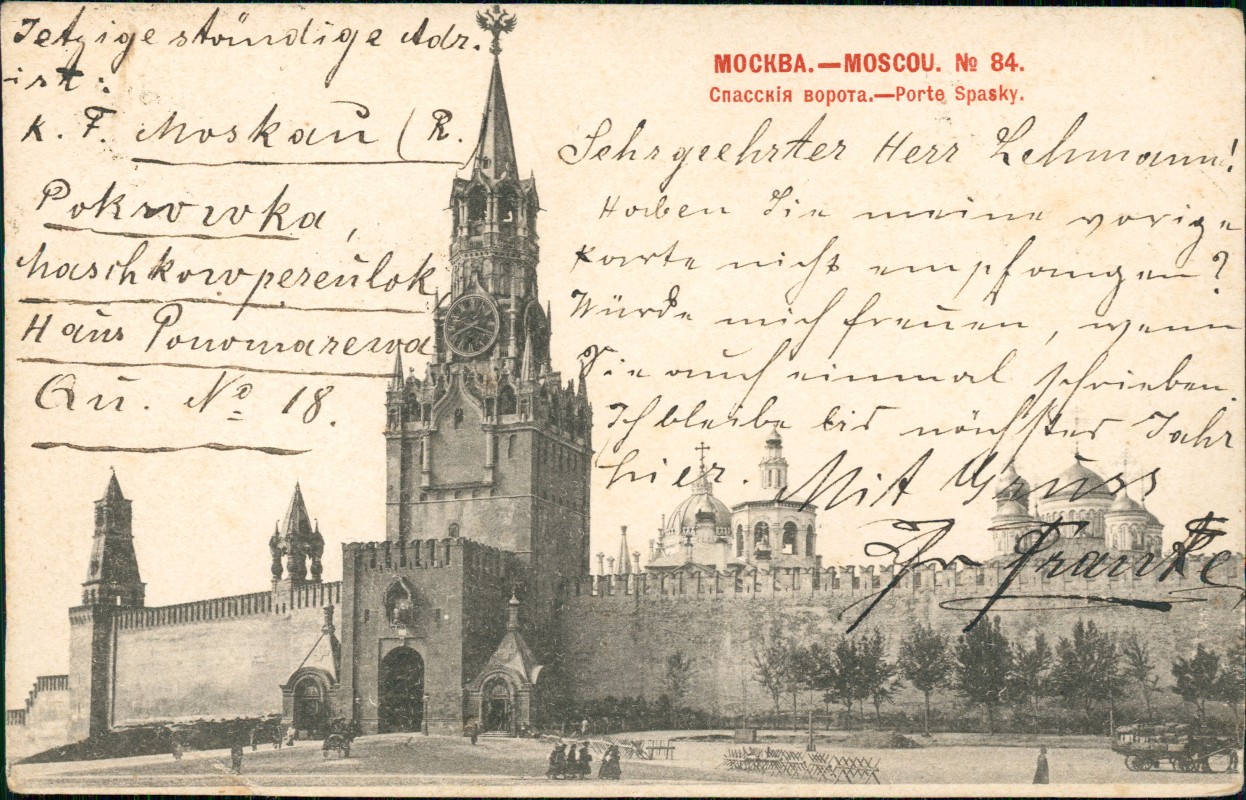 МОСКВА.—MOSCOU. № 84.
Спасскія ворота.—Porte Spasky.
Jetzige ständige Adr.
ist:
K. F. Moskau (R.
Pokrowka,
Maschkowpereulok
Haus Ponomarewa
Qu. No 18.
Sehrgeehrter Herr Lehmann!
Haben Sie meine vorige
Karte nicht empfangen?
Würde mich freuen, wenn
Sie auch einmal schrieben.
Ich bleibe bis nächstes Jahr
hier. Mit Gruss
Franke